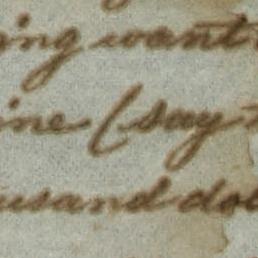 ing want
ine (say
usand dol